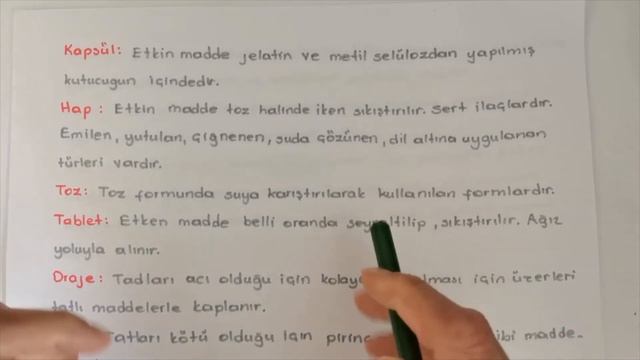 Kapsül: Etkin madde jelatin ve metil selülozdan yapılmış
kutucugun içindedir.
Hap: Etkin madde toz halinde iken sıkıştırılır. Sert ilaçlardır.
Emilen, yutulan, çiğnenen, suda çözünen, dil altına uygulanan
türleri vardır.
Toz: Toz formunda suya karıştırılarak kullanılan formlardır.
Tablet: Etken madde belli oranda seyreltilip, sıkıştırılır. Ağız
yoluyla alınır.
Draje: Tadları acı olduğu için için üzerleri
tatlı maddelerle kaplanır.
Tatları kötü olduğu için madde.